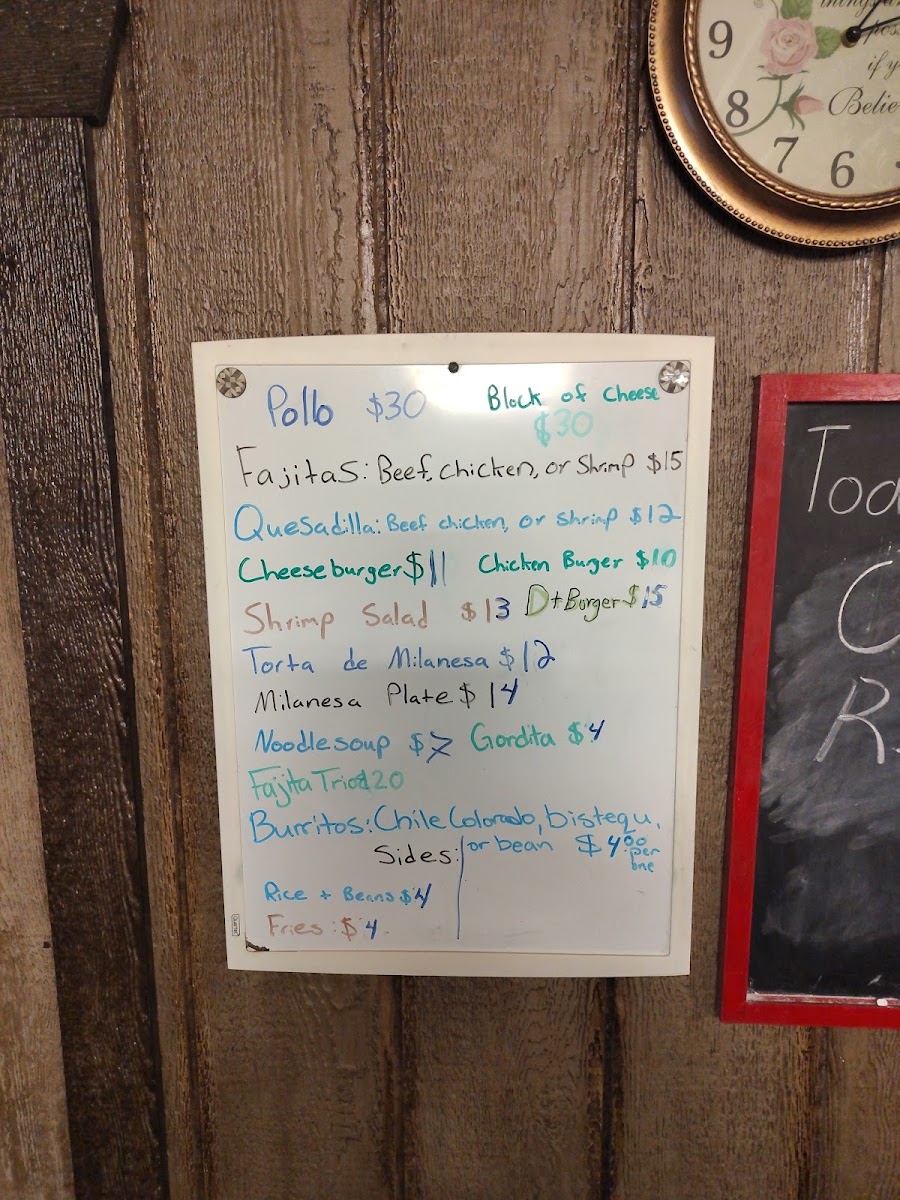 9
8
7
6
if y
Belie
Pollo $30
Block of Cheese
$30
Fajitas: Beef, chicken, or Shrimp $15
Quesadilla: Beef chicken, or shrimp $12
Cheeseburger $11 Chicken Burger $10
Shrimp Salad $13 D+Burger $15
Torta de Milanesa $12
Milanesa Plate $14
Noodlesoup $7 Gordita $4
Fajita Trio $20
Burritos: Chile Colorado, bistequ,
or bean $4.00 per one
Sides:
Rice + Beans $4
Fries: $4
Tod
C
R